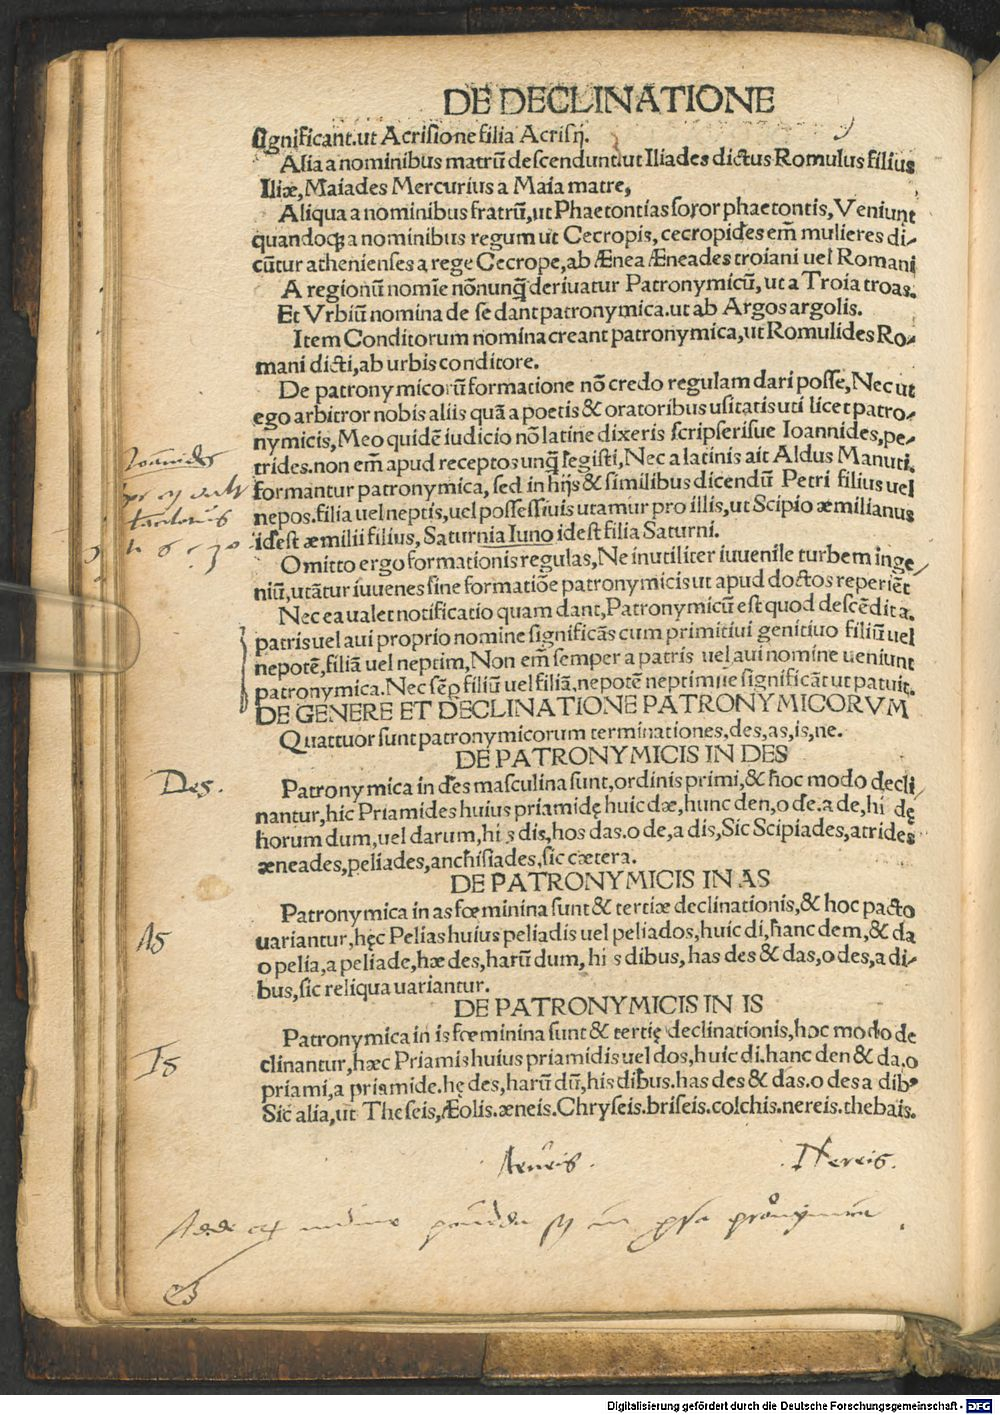 DE DECLINATIONE
significant.ut Acrisione filia Acrisij.
Alia a nominibus matrū descendunt,ut Iliades dictus Romulus filius
Iliæ, Maiades Mercurius a Maia matre,
Aliqua a nominibus fratrū,ut Phaetontias soror phaetontis, Veniunt
quandoq; a nominibus regum ut Cecropis, cecropides em̄ mulieres di-
cūtur athenienses a rege Cecrope, ab Ænea Æneades troiani uel Romani
A regionū nomīe nōnunq̄ deriuatur Patronymicū, ut a Troia troas.
Et Vrbiū nomina de se dant patronymica.ut ab Argos argolis.
Item Conditorum nomina creant patronymica, ut Romulides Ro-
mani dicti, ab urbis conditore.
De patronymicorū formatione nō credo regulam dari posse, Nec ut
ego arbitror nobis aliis quā a poetis & oratoribus usitatis uti licet patro-
nymicis, Meo quidē iudicio nō latine dixeris scripserisue Ioannides, pe-
trides.non em̄ apud receptos unq̄ legisti, Nec a latinis ait Aldus Manuti.
formantur patronymica, sed in hijs & similibus dicendū Petri filius uel
nepos.filia uel neptis, uel possessiuis utamur pro illis, ut Scipio æmilianus
idest æmilii filius, Saturnia Iuno idest filia Saturni.
Omitto ergo formationis regulas, Ne inutiliter iuuenile turbem inge-
niū, utātur iuuenes sine formatiōe patronymicis ut apud doctos reperiēt
Nec ea ualet notificatio quam dant, Patronymicū est quod descēdit a.
patris uel aui proprio nomine significās cum primitiui genitiuo filiū uel
nepotē, filiā uel neptim, Non em̄ semper a patris uel aui nomine ueniunt
patronymica. Nec sēp̲ filiū uel filiā, nepotē neptimue significāt ut patuit.
DE GENERE ET DECLINATIONE PATRONYMICORVM
Quattuor sunt patronymicorum terminationes, des, as, is, ne.
DE PATRONYMICIS IN DES
Des.
Patronymica in des masculina sunt, ordinis primi, & hoc modo decli-
nantur, hic Priamides huius priamidę huic dæ, hunc den, o de.a de, hi dę
horum dum, uel darum, his dis, hos das.o de, a dis, Sic Scipiades, atrides
æneades, peliades, anchisiades, sic cætera.
DE PATRONYMICIS IN AS
As
Patronymica in as fœminina sunt & tertiæ declinationis, & hoc pacto
uariantur, hęc Pelias huius peliadis uel peliados, huic di, hanc dem, & da
o pelia, a peliade, hæ des, harū dum, his dibus, has des & das, o des, a di-
bus, sic reliqua uariantur.
DE PATRONYMICIS IN IS
Is
Patronymica in is fœminina sunt & tertię declinationis, hoc modo de
clinantur, hæc Priamis huius priamidis uel dos, huic di.hanc den & da.o
priami, a priamide.hę des, harū dū, his dibus.has des & das.o des a dibꝰ
Sic alia, ut Theseis, Æolis.æneis.Chryseis.briseis.colchis.nereis.thebais.
Nereis.
Digitalisierung gefördert durch die Deutsche Forschungsgemeinschaft - DFG